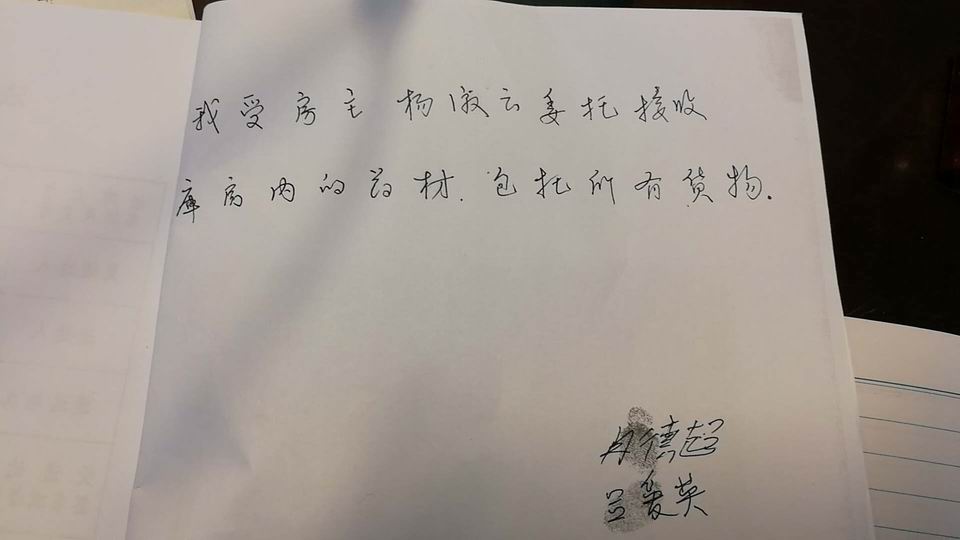 我受房主杨淑云委托接收
库房内的药材.包托所有货物.
德超
兰爱英